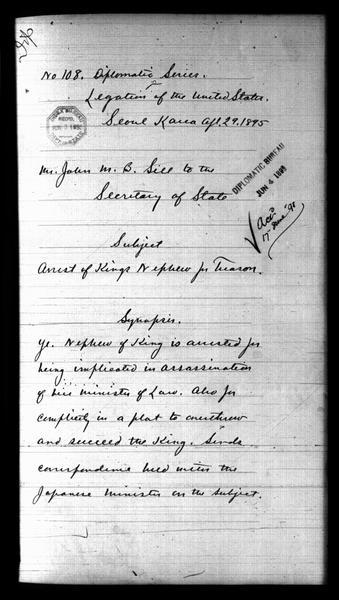 No 108. Diplomatic Series.
Legation of the United States.
Seoul Korea Apl. 29. 1895
DIPLOMATIC BUREAU
JUN 4 1895
Mr. John M. B. Sill to the
Secretary of State
Subject
Arrest of Kings Nephew for Treason.
Synopsis.
Ye. Nephew of King is arrested for
being implicated in assassination
of vice minister of Law. Also for
complicity in a plot to overthrow
and succeed the King. Sends
correspondence held with the
Japanese Minister on the subject.